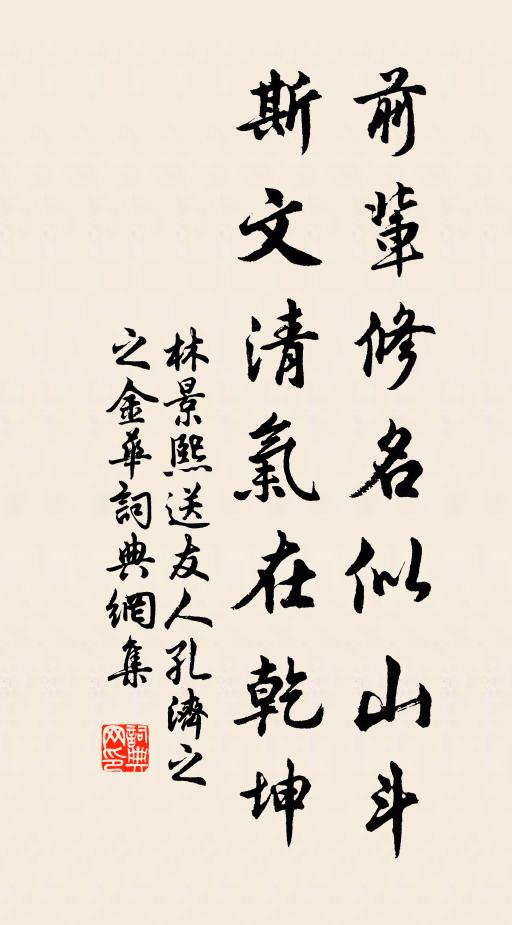 前輩修名似山斗
斯文清氣在乾坤
林景熙送友人孔濟之
之金華詞典網集
詞典网印